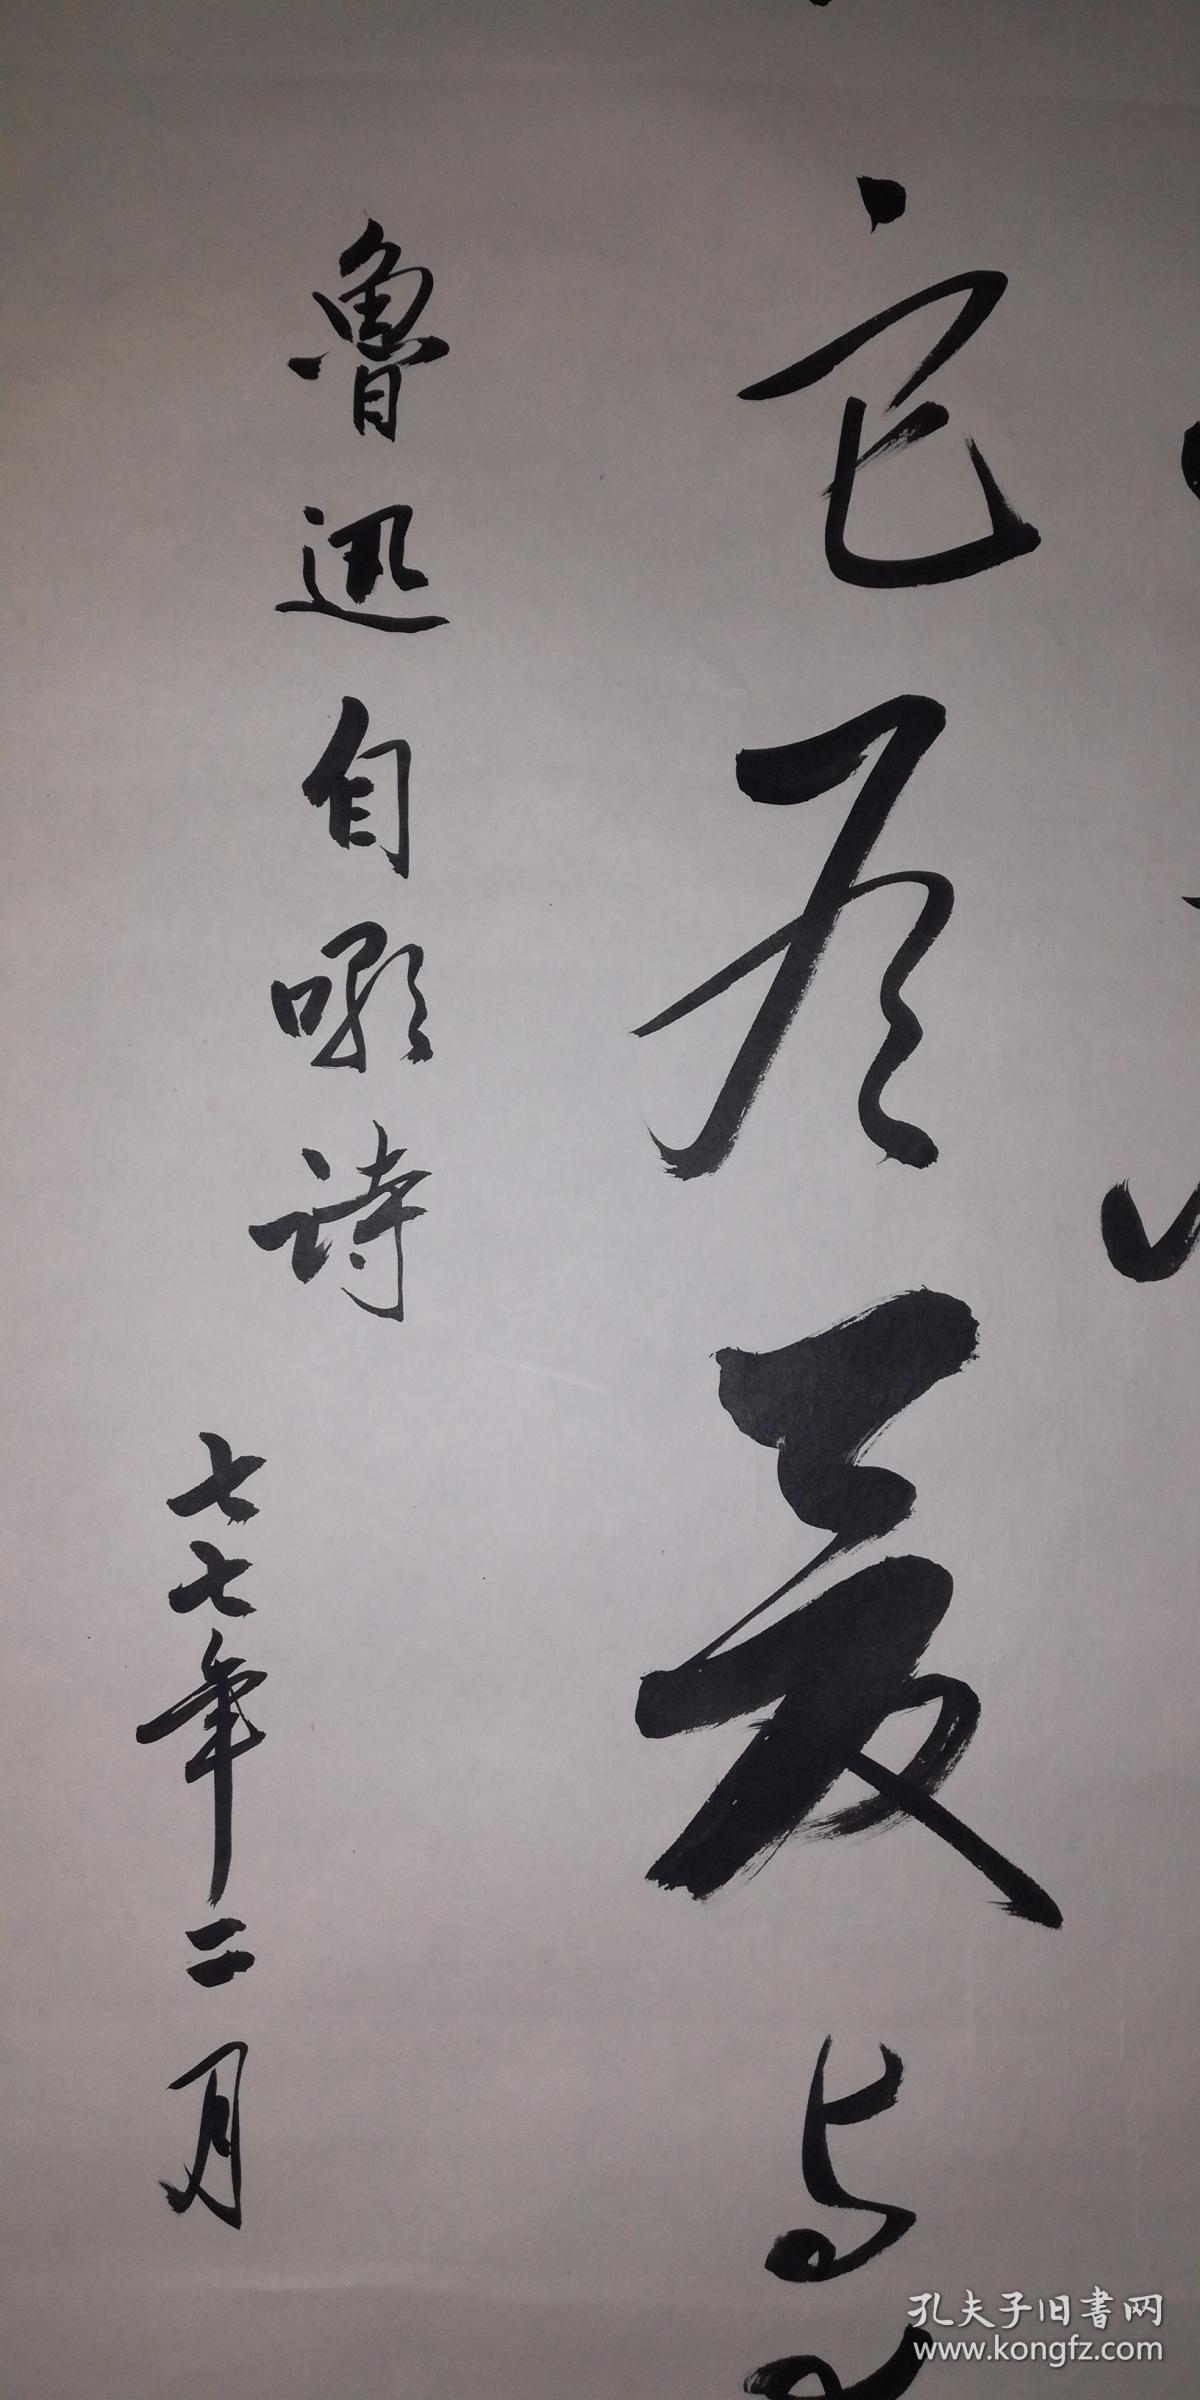 它冬夏与
魯迅自嘲诗
七七年二月
孔夫子旧书网
www.kongfz.com